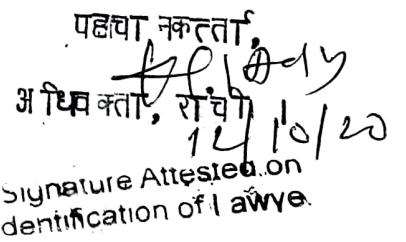 पहचा नकर्त्ता,
अधिवक्ता, राँची
12/10/20
Signature Attested.on
dentification of Lawye.